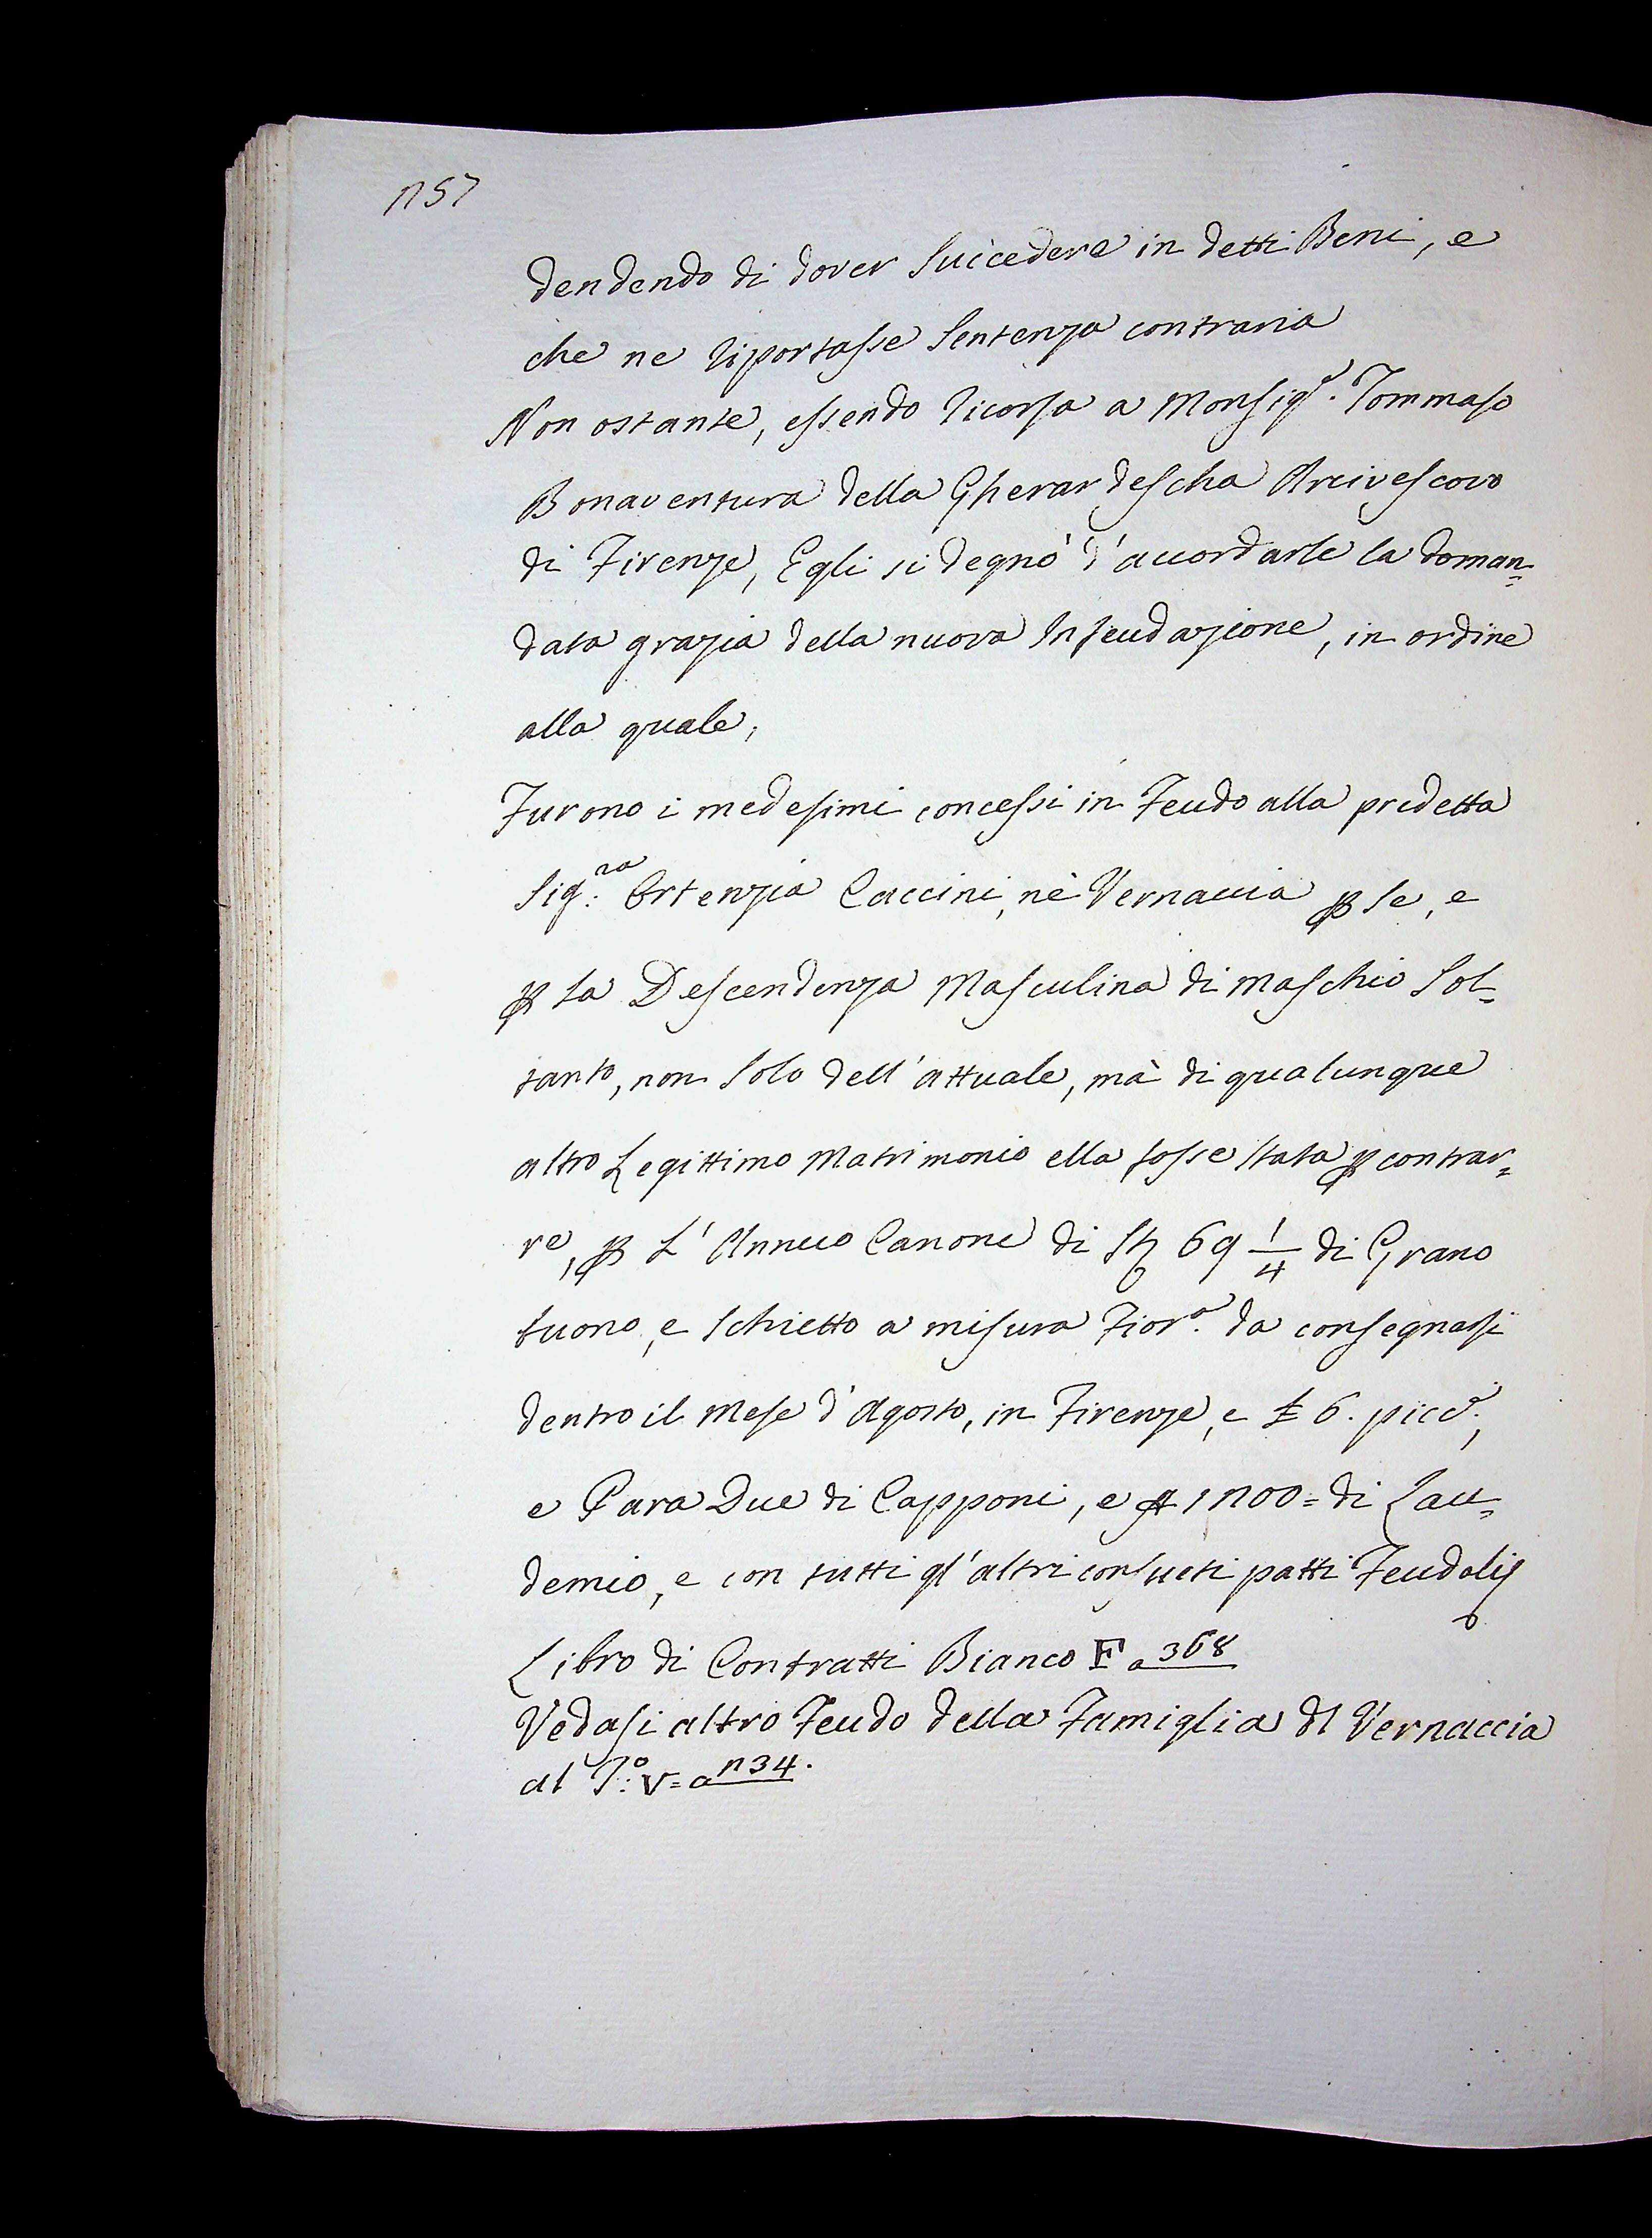 1157
dendendo di dover Succedere in detti Beni, e
che ne riportasse Sentenza contraria
Non ostante, essendo ricorsa a Monsig.r Tommaso
Bonaventura della Gherardescha Arcivescovo
di Firenze, Egli si degnò d'accordarle la doman=
data grazia della nuova Infeudazione, in ordine
alla quale,
Furono i medesimi concessi in Feudo alla predetta
Sig:ra Ortenzia Caccini, nè Vernaccia p Se, e
p la Descendenza Masculina di Maschio Sol=
tanto, non Solo dell'attuale, mà di qualunque
altro Legittimo Matrimonio ella fosse Stata p contrar=
re, p L'Annuo Canone di St 69 1/4 di Grano
buono, e Schietto a misura Fior.a da consegnarsi
dentro il Mese d'Agosto, in Firenze, e £ 6. picc.,
e Para Due di Capponi, e 1100= di Lau=
demio, e con tutti gl'altri consueti patti Feudali
Libro di Contratti Bianco F a 368
Vedasi altro Feudo della Famiglia dl Vernaccia
al T.o: V= a 1134.